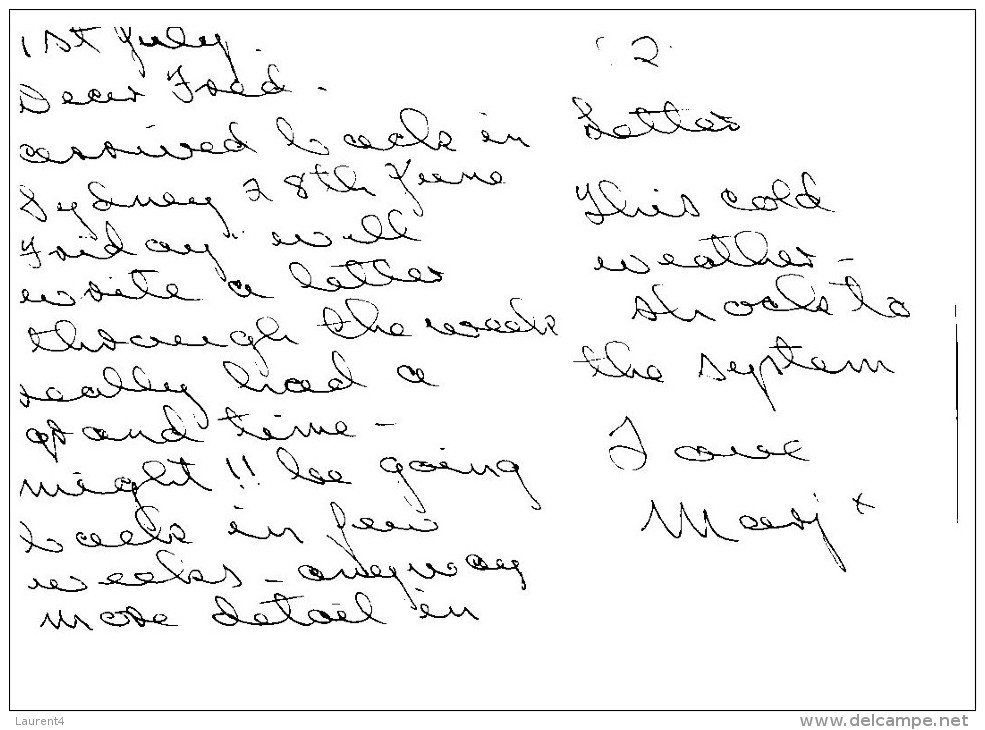 1st July.
Dear Fred.
arrived back in
Sydney 28th June
Friday" will
write a letter
through the week
really had a
grand time -
might!! be going
back in few
weeks - anyway
more detail in
2.
Letter
This cold
weather -
shock to
the system
Love
Marj x
Laurent4
www.delcampe.net